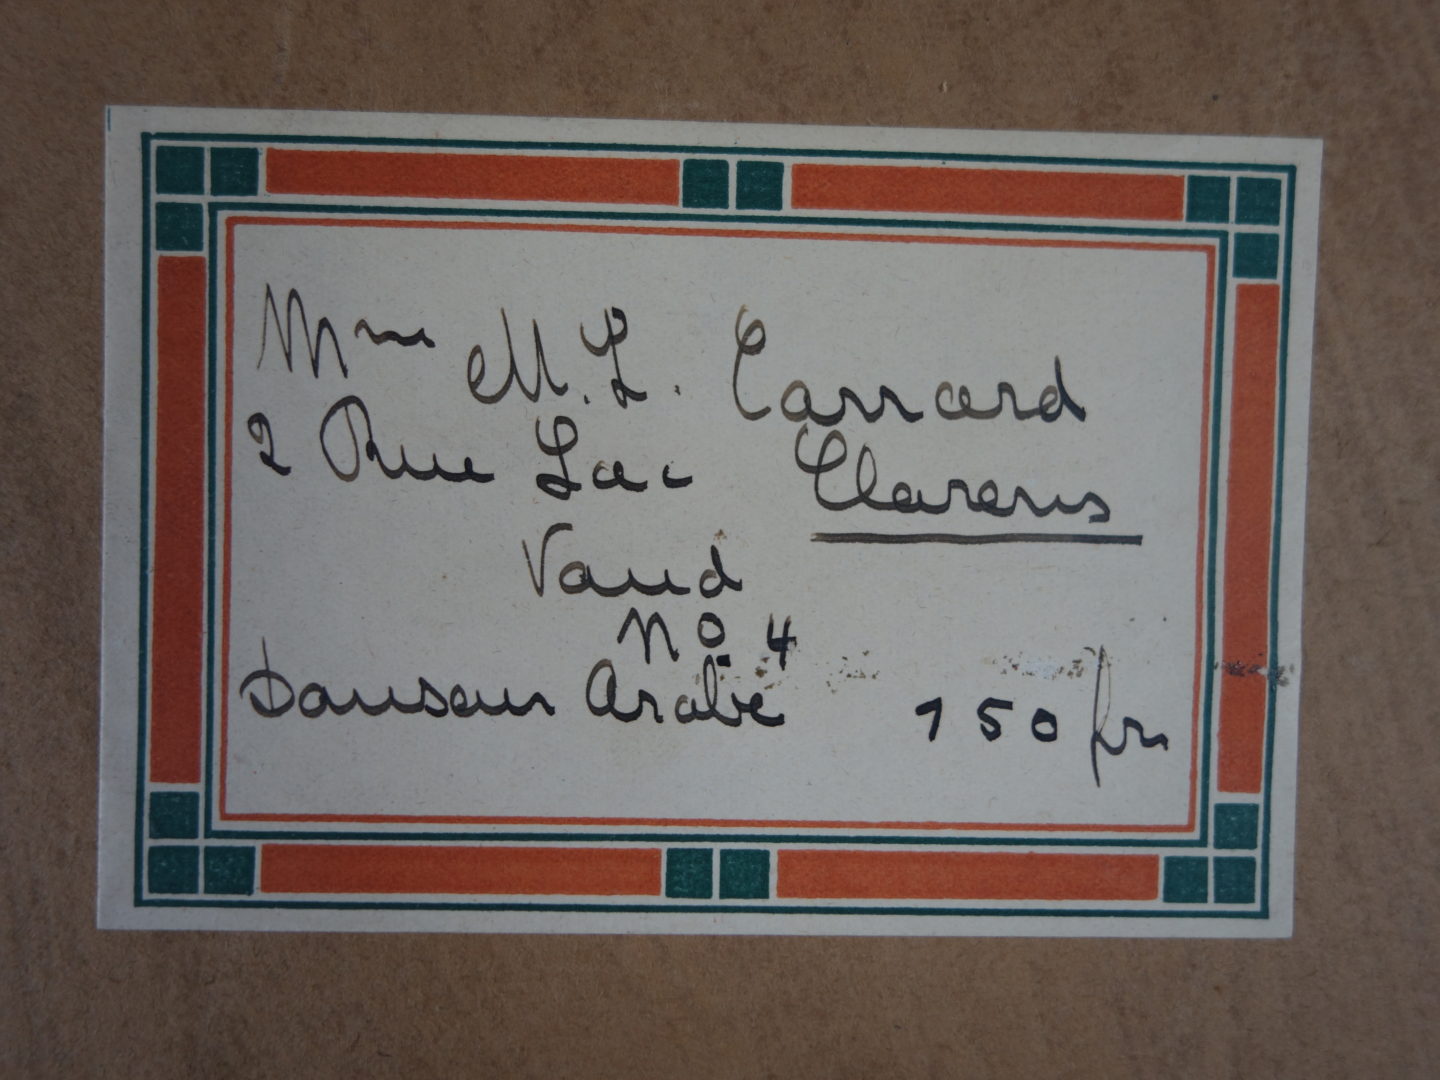 Mme M. L. Carrard
2 Rue Lac Clarens
Vaud
No. 4
Danseur Arabe 150 frs